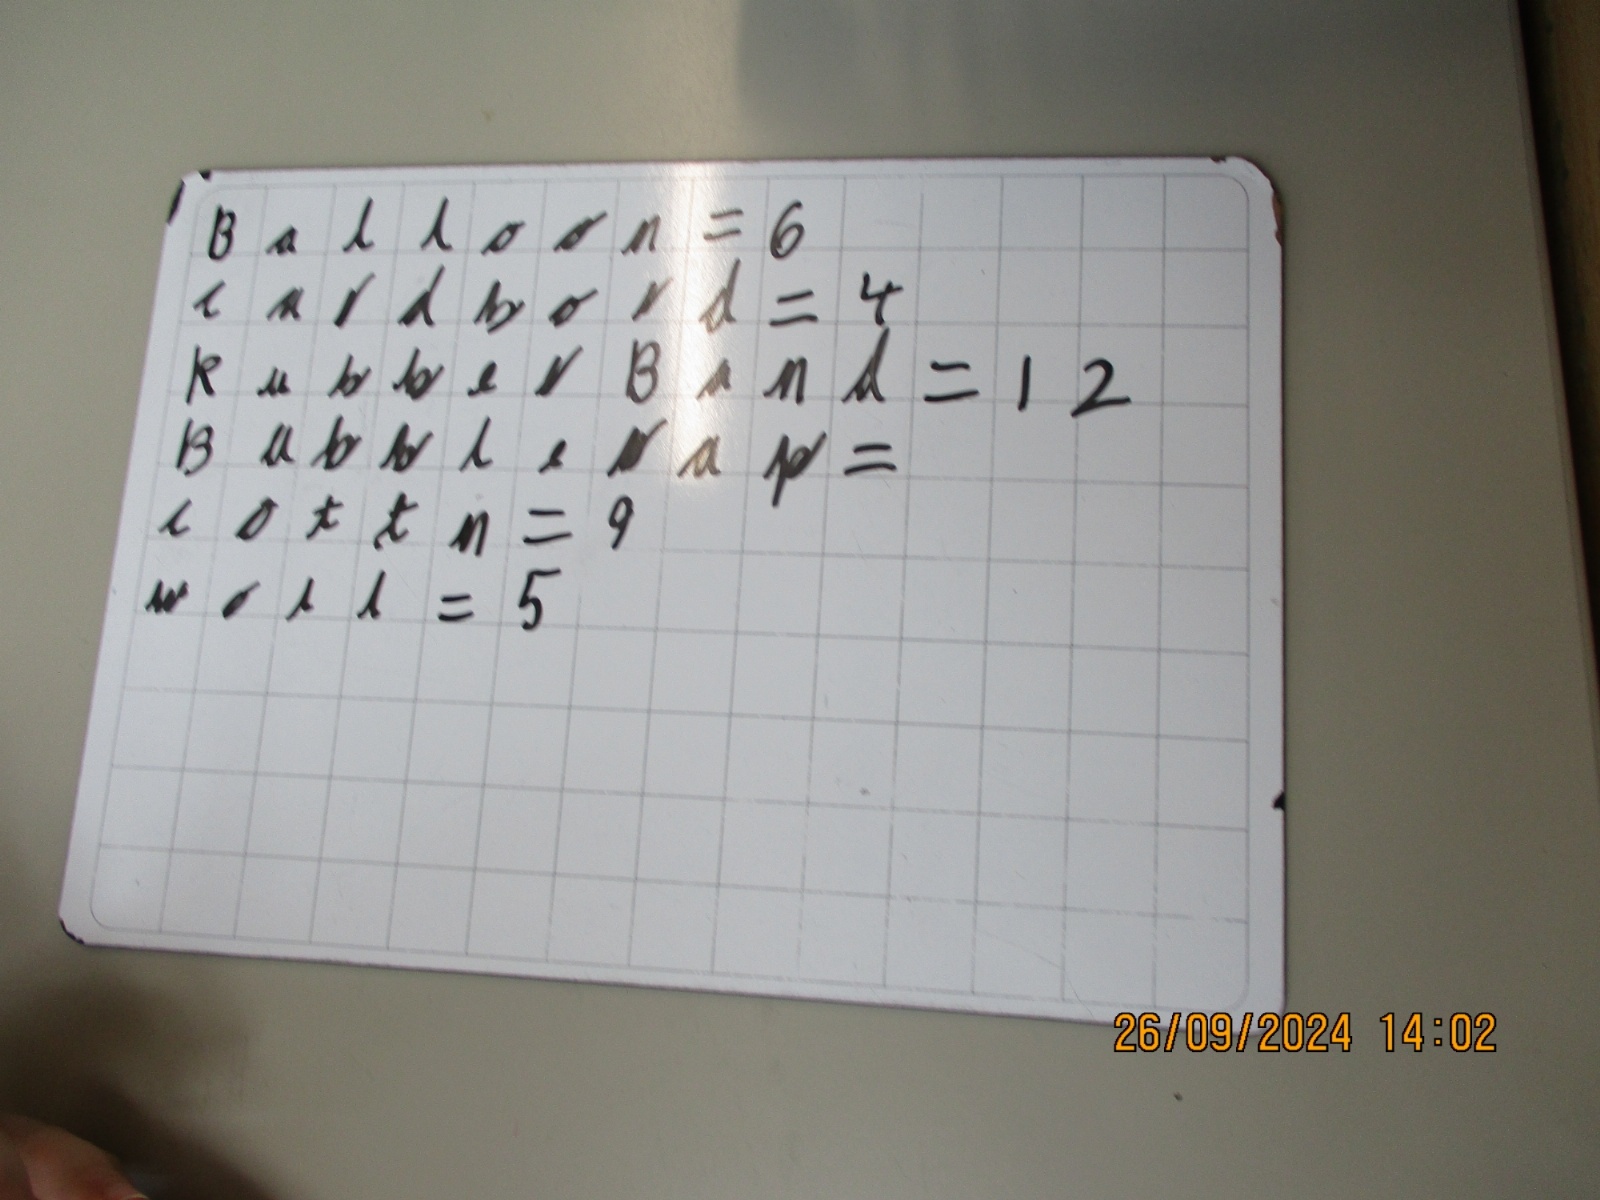 Balloon = 6
cardbord = 4
Rubber Band = 12
Bubblerap =
cottn = 9
woll = 5
26/09/2024 14:02